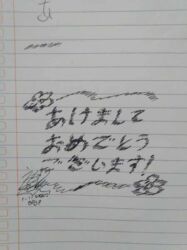 あ
あけまして
おめでとう
ございます!